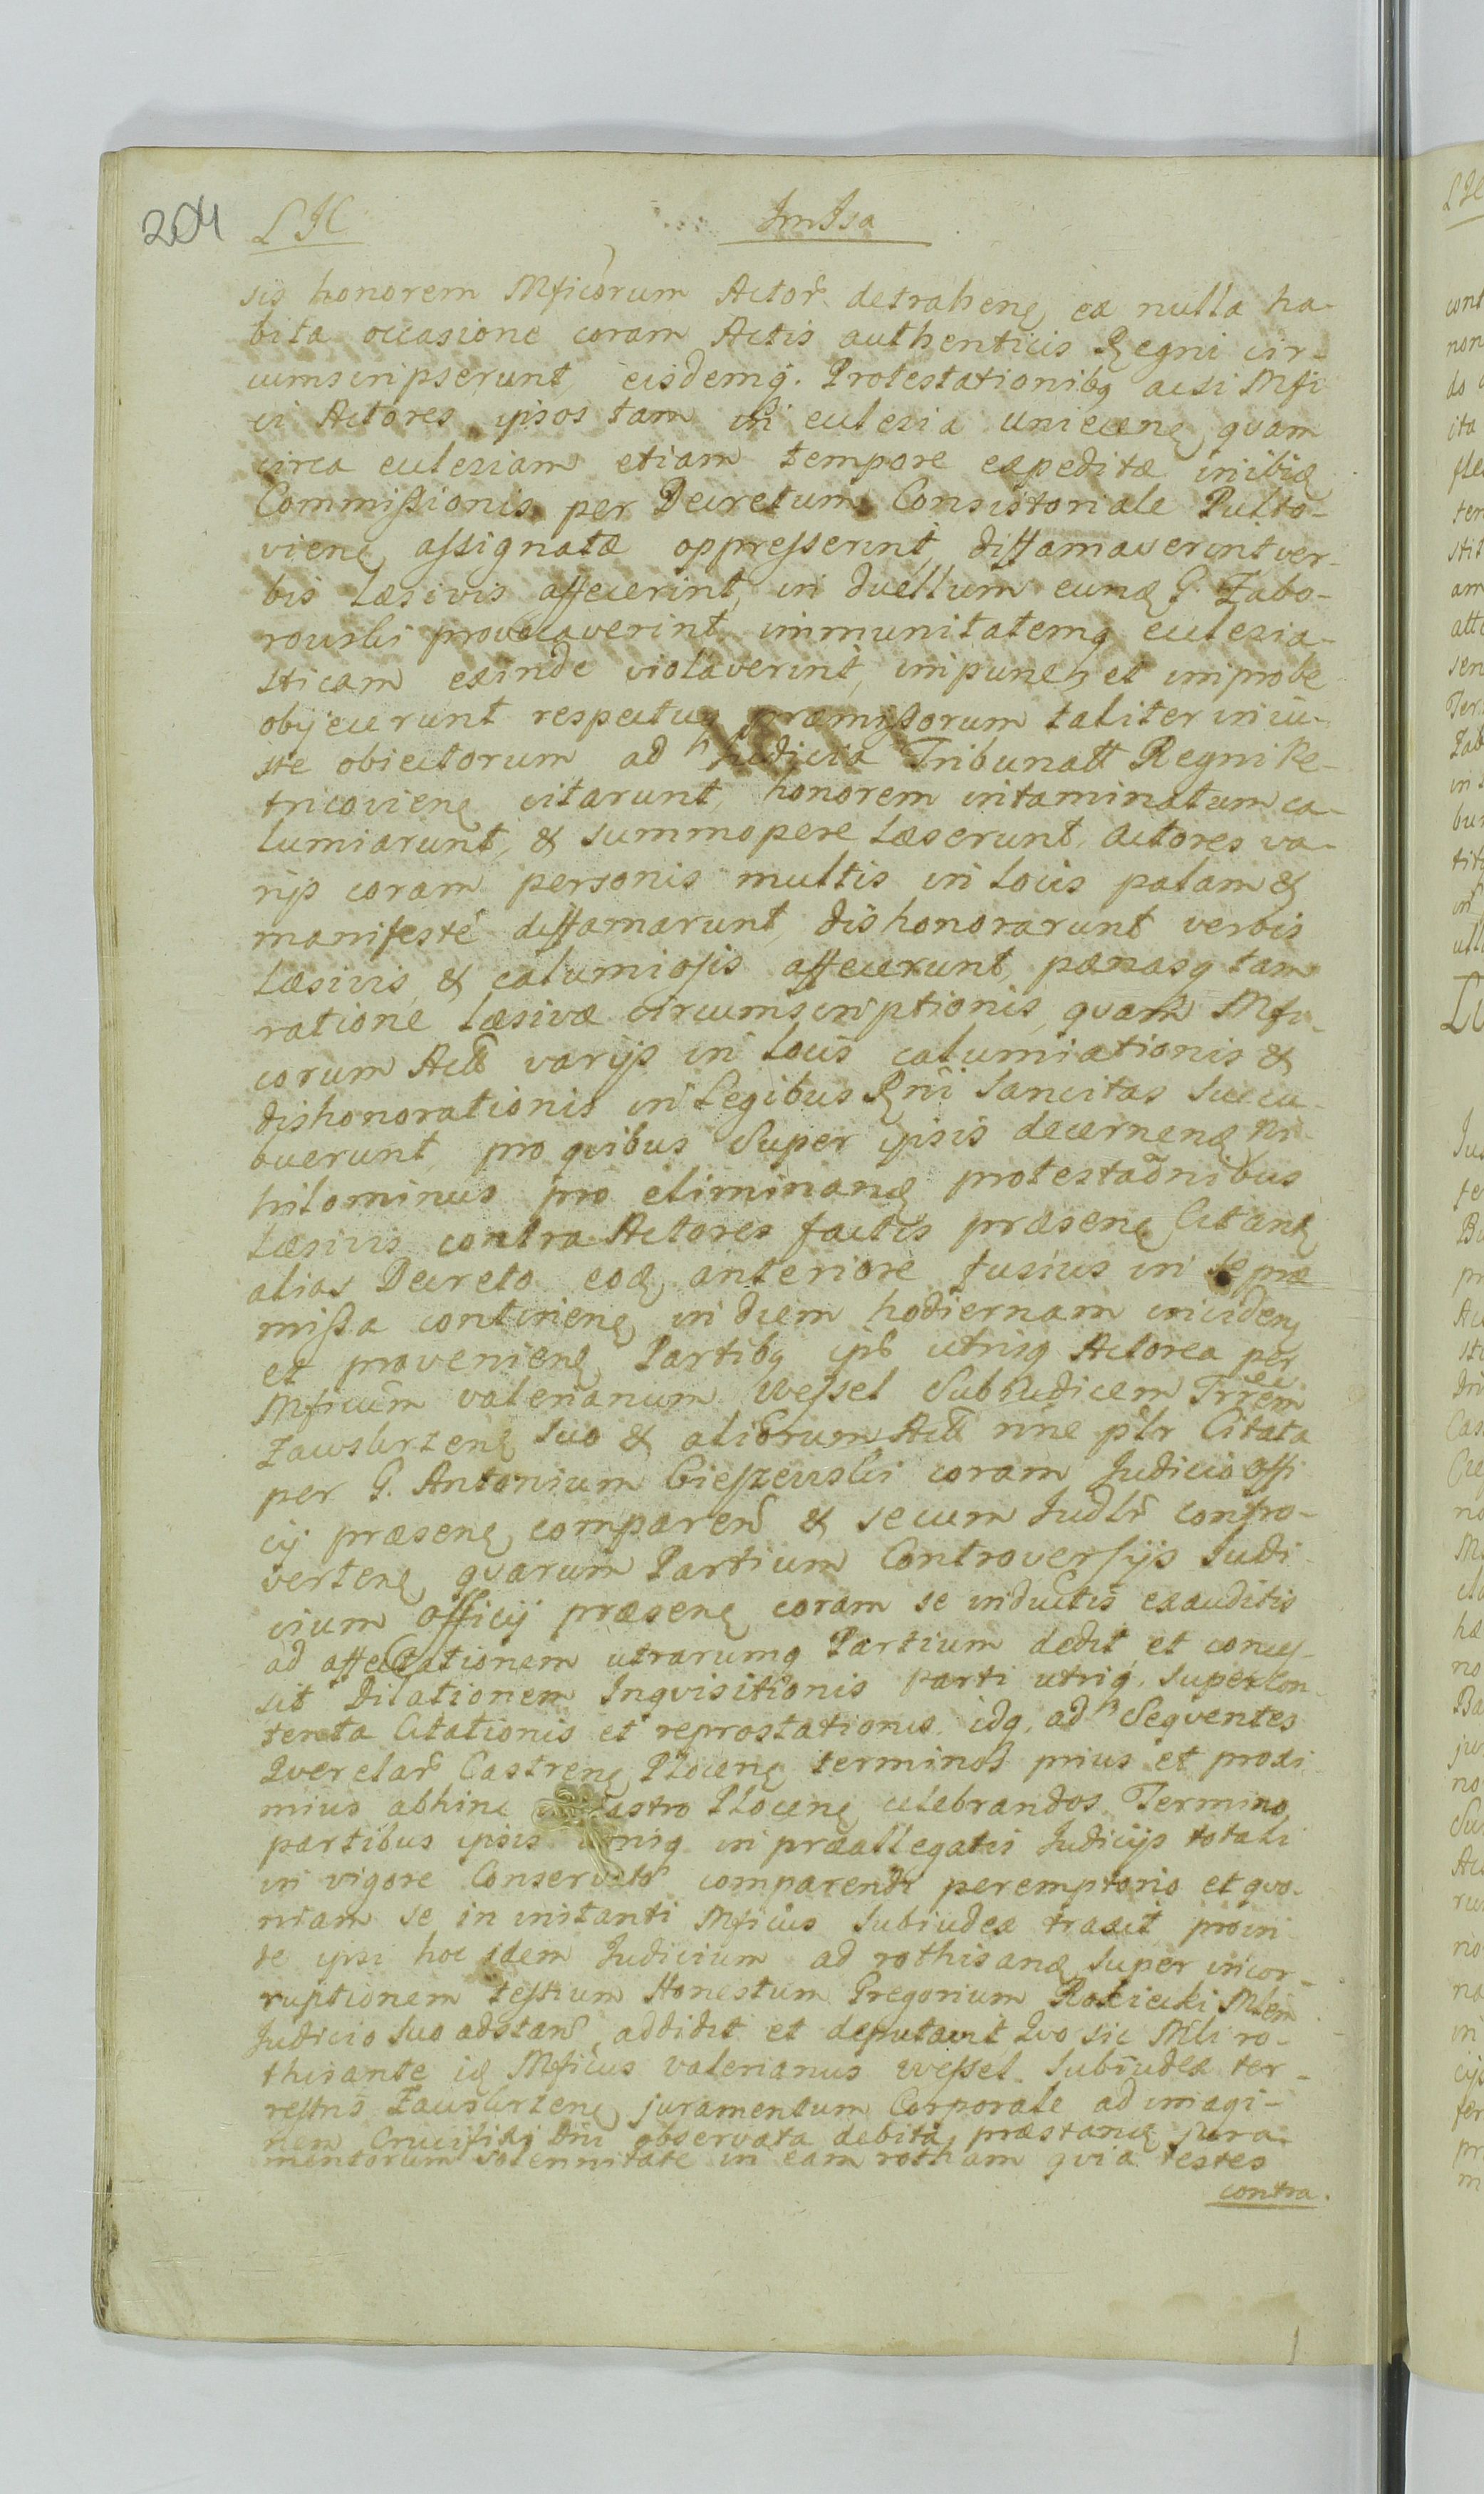 204
LIC
ImIsa
sis honorem Mficorum Actor. detrahenę ea nulla ha-
bita occasione coram Actis authenticis Regni cir-
cumscripserunt, eisdemq. Protestationibq acsi Mfi
ci Actores ipsos tam in eclesia uniecenę quam
circa eclesiam etiam tempore expeditæ inibiq
Commißionis per Decretum Consistoriale Pulto-
vienę assignatæ oppresserint, diffamaverint ver-
bis læsivis affecerint, in duellum eunq G. Zabo-
rowski provocaverint immunitatemq eclesia-
sticam exinde violaverint, impuneq et improbe
objecerunt respectuq præmißorum taliter iniu-
ste obiectorum ad h Judicia Tribunalt Regni Pe-
tricovienę citarunt, honorem intaminatum ca-
lumiarunt, & summopere Læserunt, Actores va-
rijs coram personis multis in locis palam &
manifesté diffamarunt, dishonorarunt verbis
Læsivis & calumiosis affecerunt, pænasq tam
ratione Læsivæ circumscriptionis, quam Mfi-
corum Act varijs in locis calumiationis &
dishonorationis in Legibus Rni Sancitas Succu-
buerunt, pro quibus Super ipsis decernenę Ni-
hilominus pro eliminanę protestaõnibus
Læsivis contra Actores factis præsenę Citant
alias Decreto eoq anteriore fusius in se præ
mißa continenę in diem hodiernam incidenę
et provenienę Partibq ipß utrisq Actorea per
Mficum Valerianum Wessel Subiudicem Trrem
Zawskrzenę Suo & aliorum Act nne plr Citata
per G. Antonium Cieszewski coram Judicio Offi
cij præsenę comparen & secum Judlr contro-
vertenę quarum Partium Controversijs Judi
cium Officij præsenę coram se inductis exauditis
ad affectationem utrarumq Partium dedit et conces-
sit Dilationem Inquisitionis parti utriq. Super Con-
tenta Citationis et reprostationis. idq. ad Sequentes
Querelar Castrenę Plocenę terminos prius et proxi
mius abhinc in Castro Plocenę celebrandos. Termino
partibus ipsis utrisq in præallegatis Judicijs totali
in vigore Conservato comparendi peremptorio et quo-
niam se in instanti Mficus Subiudex traxit proin
de ipsi hoc idem Judicium ad rothisanę Super incor-
ruptionem testium Honestum Gregorium Rokicki Mlem
Judicio Suo adstan addidit et deputavit Quo sic Mli ro-
thisante iq Mficus Valerianus Wessel Subiudex ter-
restris Zawskrzenę juramentum Corporale ad imagi-
nem Crucifixi Dni observata debita præstanę jura-
mentorum Solennitate in eam rotham quia testes
contra.